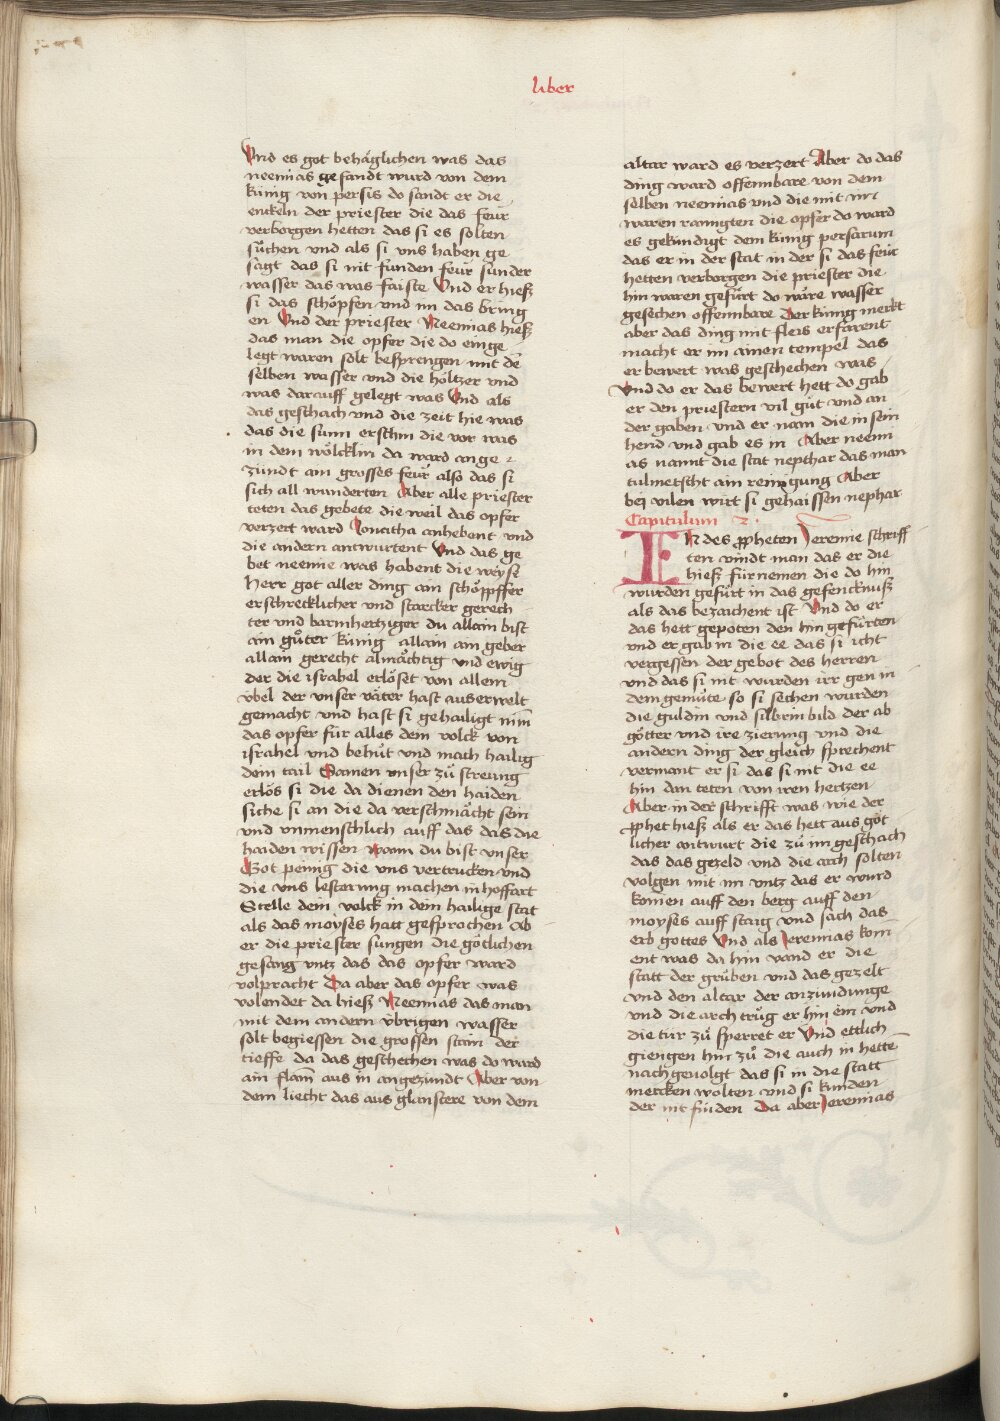 liber
Vnd es got behäglichen was das
neemias gesandt wurd von dem
künig von persis do sandt er die
enckeln der priester die das feür
verborgen hetten das si es solten
sůchen vnd als si vns haben ge
sagt das si nit funden feür sunder
wasser das was faiste Vnd er hiesz
si das schöpfen vnd im das bring
en Vnd der priester Neemias hiesz
das man die opfer die do einge
legt waren solt besprengen mit de
selben wasser vnd die höltzer vnd
was darauff gelegt was Vnd als
das geschach vnd die zeit hie was
das die sunn erschin die vor was
in dem wölcklin da ward ange
zündt ain grosses feür also das si
sich all wunderten Aber alle priester
teten das gebete die weil das opfer
verzert ward Jonatha anhebent vnd
die andern antwurtent Vnd das ge
bet neemie was habent die weyse
Herr got aller ding ain schöpffer
erschrecklicher vnd starcker gerech
ter vnd barmhertziger du allain bist
ain gůter künig allain ain geber
allain gerecht almächtig vnd ewig
der die israhel erlöset von allem
vbel der vnser väter hast auserwelt
gemacht vnd hast si gehailigt nim
das opfer für alles dem volck von
israhel vnd behüt vnd mach hailig
dem tail Samen vnser zů streung
erlös si die da dienen den haiden
siche si an die da verschmächt sein
vnd vnmenschlich auff das das die
haiden wissen wann du bist vnser
Got peinig die vns vertrucken vnd
die vns lesterung machen in hoffart
Stelle dein volck in dein hailige stat
als das moyses hatt gesprochen Ab
er die priester sungen die götlichen
gesang vntz das das opfer ward
volpracht Da aber das opfer was
volendet da hiesz Neemias das man
mit dem andern übrigen wasser
solt begiessen die grossen stain der
tieffe da das geschechen was do ward
ain flam aus in angezündt Aber von
dem liecht das aus glanstere von dem
altar ward es verzert Aber do das
ding ward offennbare von dem
selben neemias vnd die mit im
waren rainigten die opfer do ward
es gekündigt dem künig persarum
das er in der stat in der si das feür
hetten verborgen die priester die
hin waren gefürt do wäre wasser
gesechen offennbare Der künig merkt
aber das ding mit fleis erfarent
macht er im ainen tempel das
er bewert was geschechen was
Vnd do er das bewert hett do gab
er den priestern vil güt vnd an
der gaben vnd er nam die in sein
hend vnd gab es in Aber neemi
as nannt die stat nepthar das man
tulmetscht ain reinigung Aber
bei vilen wirt si gehaissen nephar
Capitulum 2.
IN des ppheten Jeremie schriff
ten vindt man das er die
hiesz fürnemen die do hin
wurden gefürt in das gefencknusz
als das bezaichent ist Vnd do er
das hett gepoten den hin gefürten
vnd er gab in die ee das si icht
vergessen der gebot des herren
vnd das si nit wurden irr gen in
dem gemüte so si sechen wurden
die guldin vnd silbrin bild der ab
götter vnd ire zierung vnd die
andern ding der gleich sprechent
vermant er si das si nit die ee
hin dan teten von iren hertzen
Aber in der schrifft was wie der
pphet hiesz als er das hett aus göt
licher antwurt die zů im geschach
das das gezeld vnd die arch solten
volgen mit im vntz das er wurd
komen auff den berg auff den
moyses auff staig vnd sach das
erb gottes Vnd als Jeremias kom
ent was da hin vand er die
statt der grüben vnd das gezelt
vnd den altar der anzündunge
vnd die arch trüg er hin ein vnd
die tür zů sperret er Vnd ettlich
giengen hin zů die auch in hette
nachgevolgt das si in die statt
mercken wolten vnd si kunden
der nit finden Da aber Jeremias